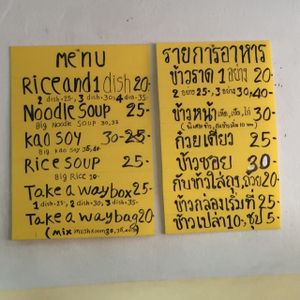 MENU
Rice and 1 dish 20-
2 dish-25-, 3 dish-30-, 4 dish-35-
Noodle Soup 25-
Big Noodle Soup 30,
Kao Soy 30-25-
Big Kao Soy 35,
Rice Soup 25-
Big Rice 30-
Take a way box 25-
1 dish-25-, 2 dish-30-, 3 dish-35-
Take a way bag 20-
(mix 30,
รายการอาหาร
ข้าวราด 1 อย่าง 20-
2 อย่าง 25-, 3 อย่าง 30, 40-
ข้าวหน้า 30-
ก๋วยเตี๋ยว 25-
ข้าวซอย 30-
กับข้าวใส่ถุง, ถ้วย 20-
ข้าวกล่องเริ่มที่ 25-
ข้าวเปล่า 10-, ซุป 5-